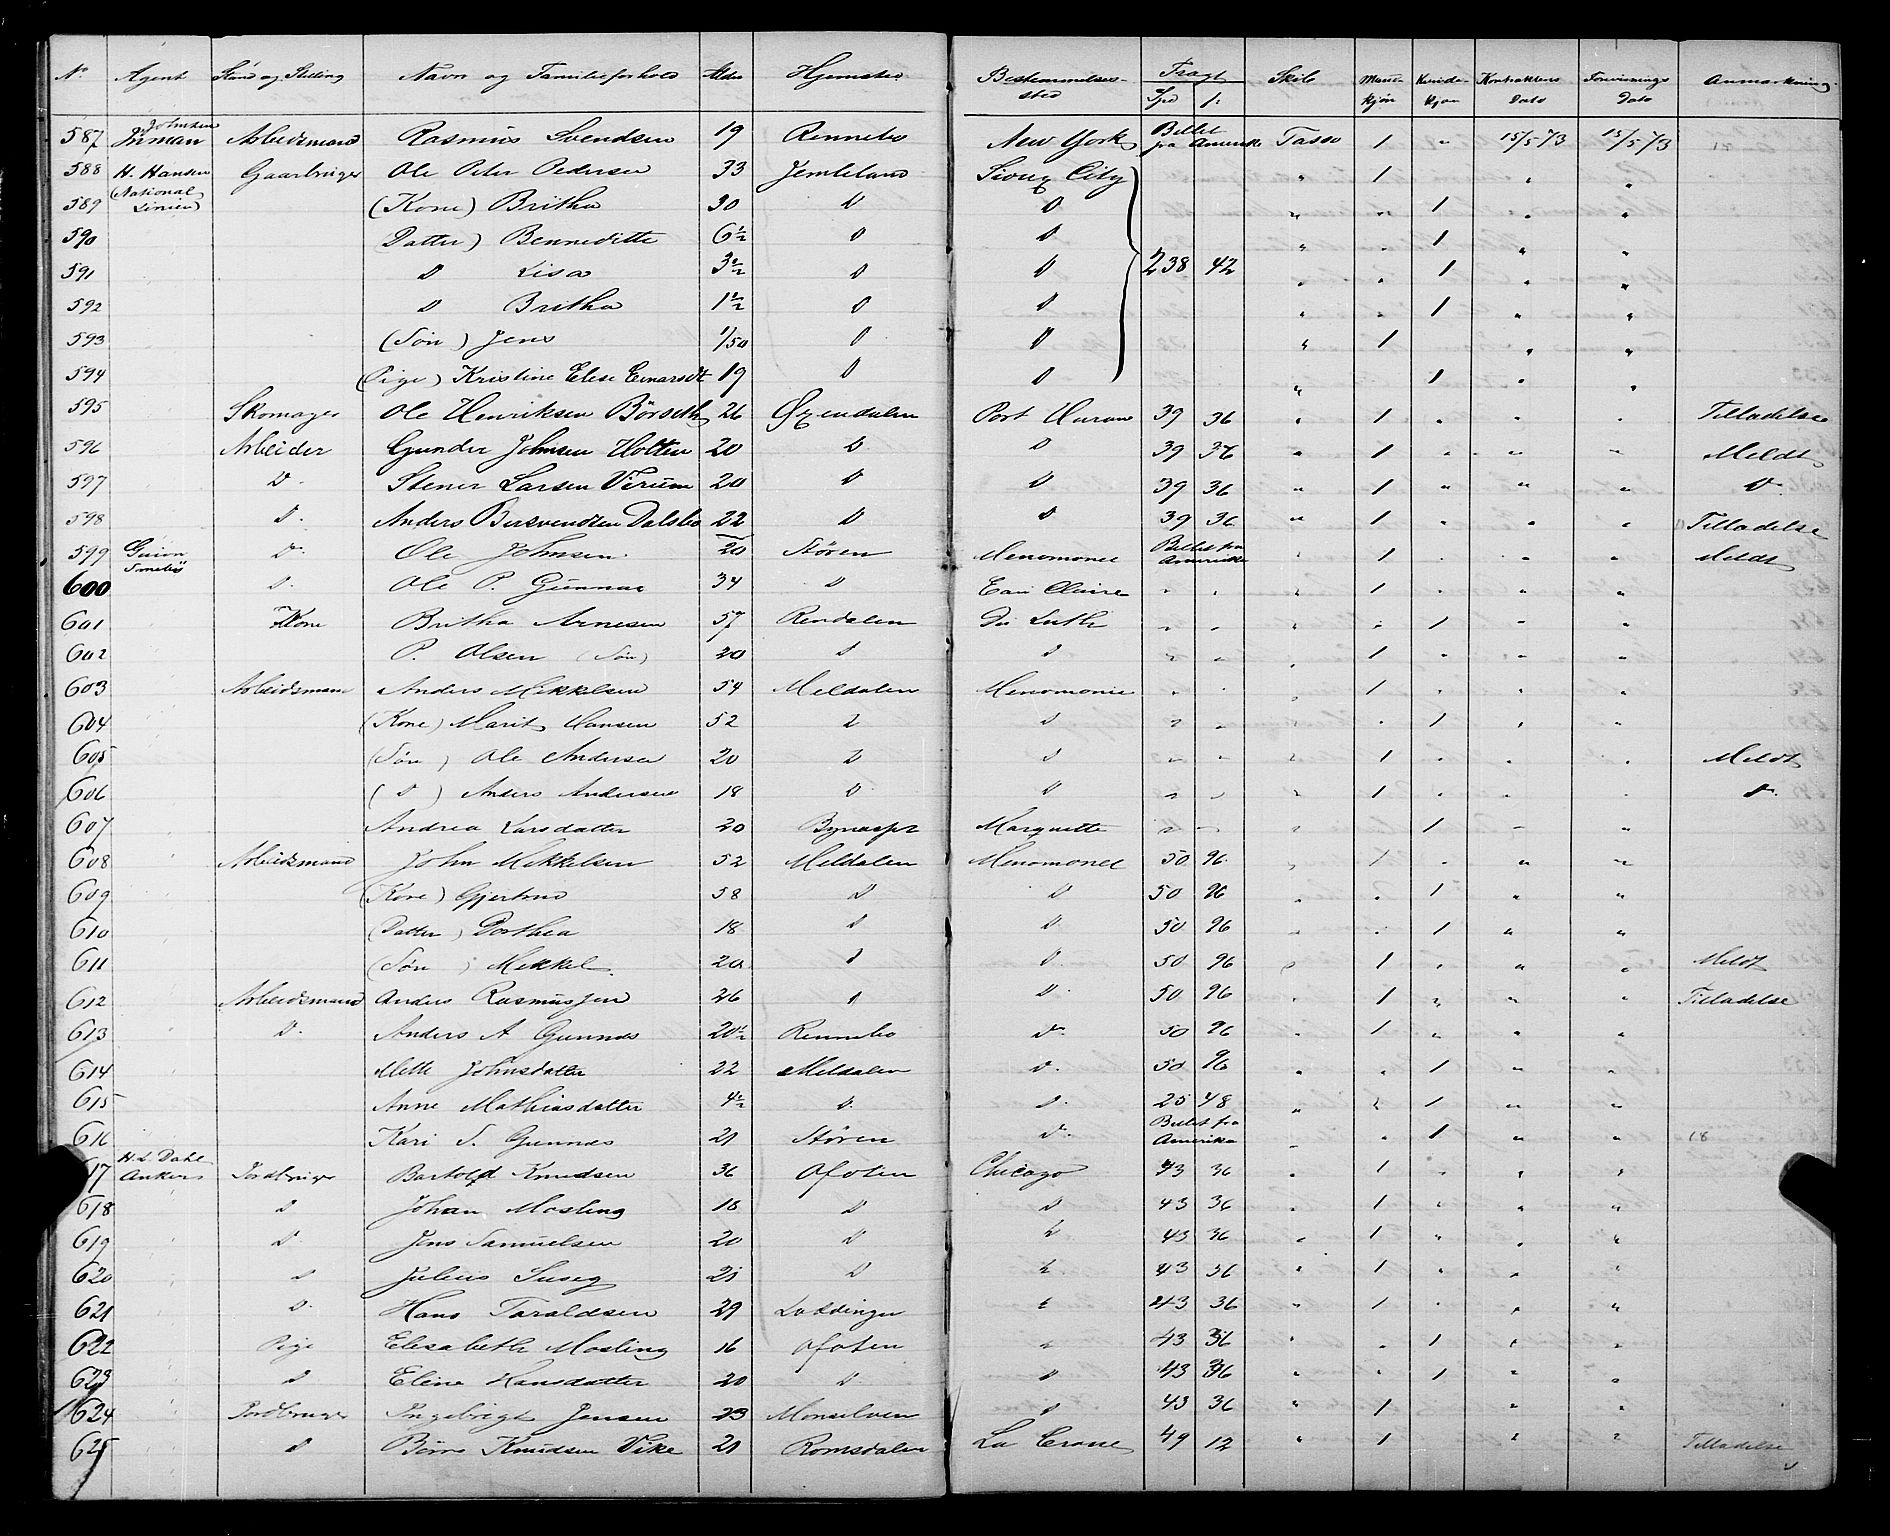 No Agent Stand og Stilling Navn og Familieforhold Alder Hjemsted Bestemmelsessted Fragt Spd ß Skib Mandkjøn Kvindekjøn Kontraktens Dato Forevisnings Dato Anmærkning
587 Johnsen Inman Arbeidsmand Rasmus Svendsen 19 Rennebo New York Billet fra Amerika Tasso 1 " 15/5 73 15/5 73
588 H. Hansen (National Linien) Gaardbruger Ole Peter Pedersen 33 Jemteland Sioux City " 1 " "
589 (Kone) Britha 30 D D " " 1 " "
590 Datter) Benneditte 6½ D D " " 1 " "
591 D Lisa 3½ D D 238 42 " " 1 " "
592 D Britha 1½ D D " " 1 " "
593 (Søn) Jens 1/50 D D " 1 " "
594 (Pige) Kristine Elise Einarsdt 19 D D " 1 " "
595 Skomager Ole Henriksen Börseth 26 Øxendalen Port Huron 39 36 " 1 " " " Tilladelse
596 Arbeider Gunder Johnsen Hotten 20 D D 39 36 " 1 " " " Meldt
597 D. Stener Larsen Virum 20 D D 39 36 " 1 " " " D.
598 D. Anders Bersvendsen Dalsbo 22 D D 39 36 " 1 " " " Tilladelse
599 Guion D. Ole Johnsen 20 Støren Menomonee Billet fra Amerika " 1 " " " Meldt
600 D. Ole P. Gunnar 34 D Eau Claire " " " 1 " " "
601 Kone Britha Arnesen 57 Rendalen Du Luth " " " " 1 " "
602 P. Olsen (Søn) 20 D D " " " 1 " " "
603 Arbeidsmand Anders Mikkelsen 54 Meldalen Menomonie " " " 1 " " "
604 (Kone) Marit Hansen 52 D D " " " " 1 " "
605 (Søn) Ole Andersen 20 D D " " " 1 " " " Meldt
606 (D) Anders Andersen 18 D D " " " 1 " " " D.
607 Andrea Larsdatter 20 Bynæsset Marquette " " " 1 " "
608 Arbeidsmand John Mikkelsen 52 Meldalen Menomonee 50 96 " 1 " " "
609 (Kone) Gjertrud 58 D D 50 96 " " 1 " "
610 (Datter) Dorthea 18 D D 50 96 " " 1 " "
611 (Søn) Mikkel 20 D D. 50 96 " 1 " " " Meldt
612 Arbeidsmand Anders Rasmussen 26 D D. 50 96 " 1 " " " Tilladelse
613 D. Anders A Gunnes 20½ Rennebo D. 50 96 " 1 " " "
614 Mette Johnsdatter 22 Meldalen D. 50 96 " " 1 " "
615 Anne Mathiasdatter 4½ D. D. 25 48 " " 1 " "
616 Kari S. Gunnes 21 Støren D. Billet fra Amerika " " 1 " " 18
617 H. L. Dahl Anker Jordbruger Bartold Knudsen 36 Ofoten Chicago 43 36 " 1 " " "
618 D Johan Mosling 18 D D 43 36 " 1 " " "
619 D Jens Samuelsen 20 D D 43 36 " 1 " " "
620 D Julius Suseg 21 D D 43 36 " 1 " " "
621 D. Hans Taraldsen 29 Lødingen D 43 36 " 1 " " "
622 Pige Elisabeth Mosling 16 Ofoten D 43 36 " " 1 " "
623 D Eline Hansdatter 20 D. D 43 36 " " 1 " "
624 Jordbruger Ingebrigt Jensen 23 Monselven D 43 36 " 1 " " "
625 D Börre Knudsen Vike 21 Romsdalen La Crosse 49 12 " 1 " " " Tilladelse